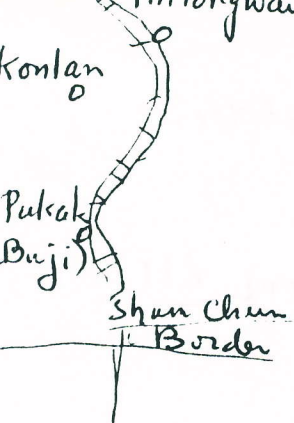 Konlan
Pukak
(Buji)
Shum Chun
Border